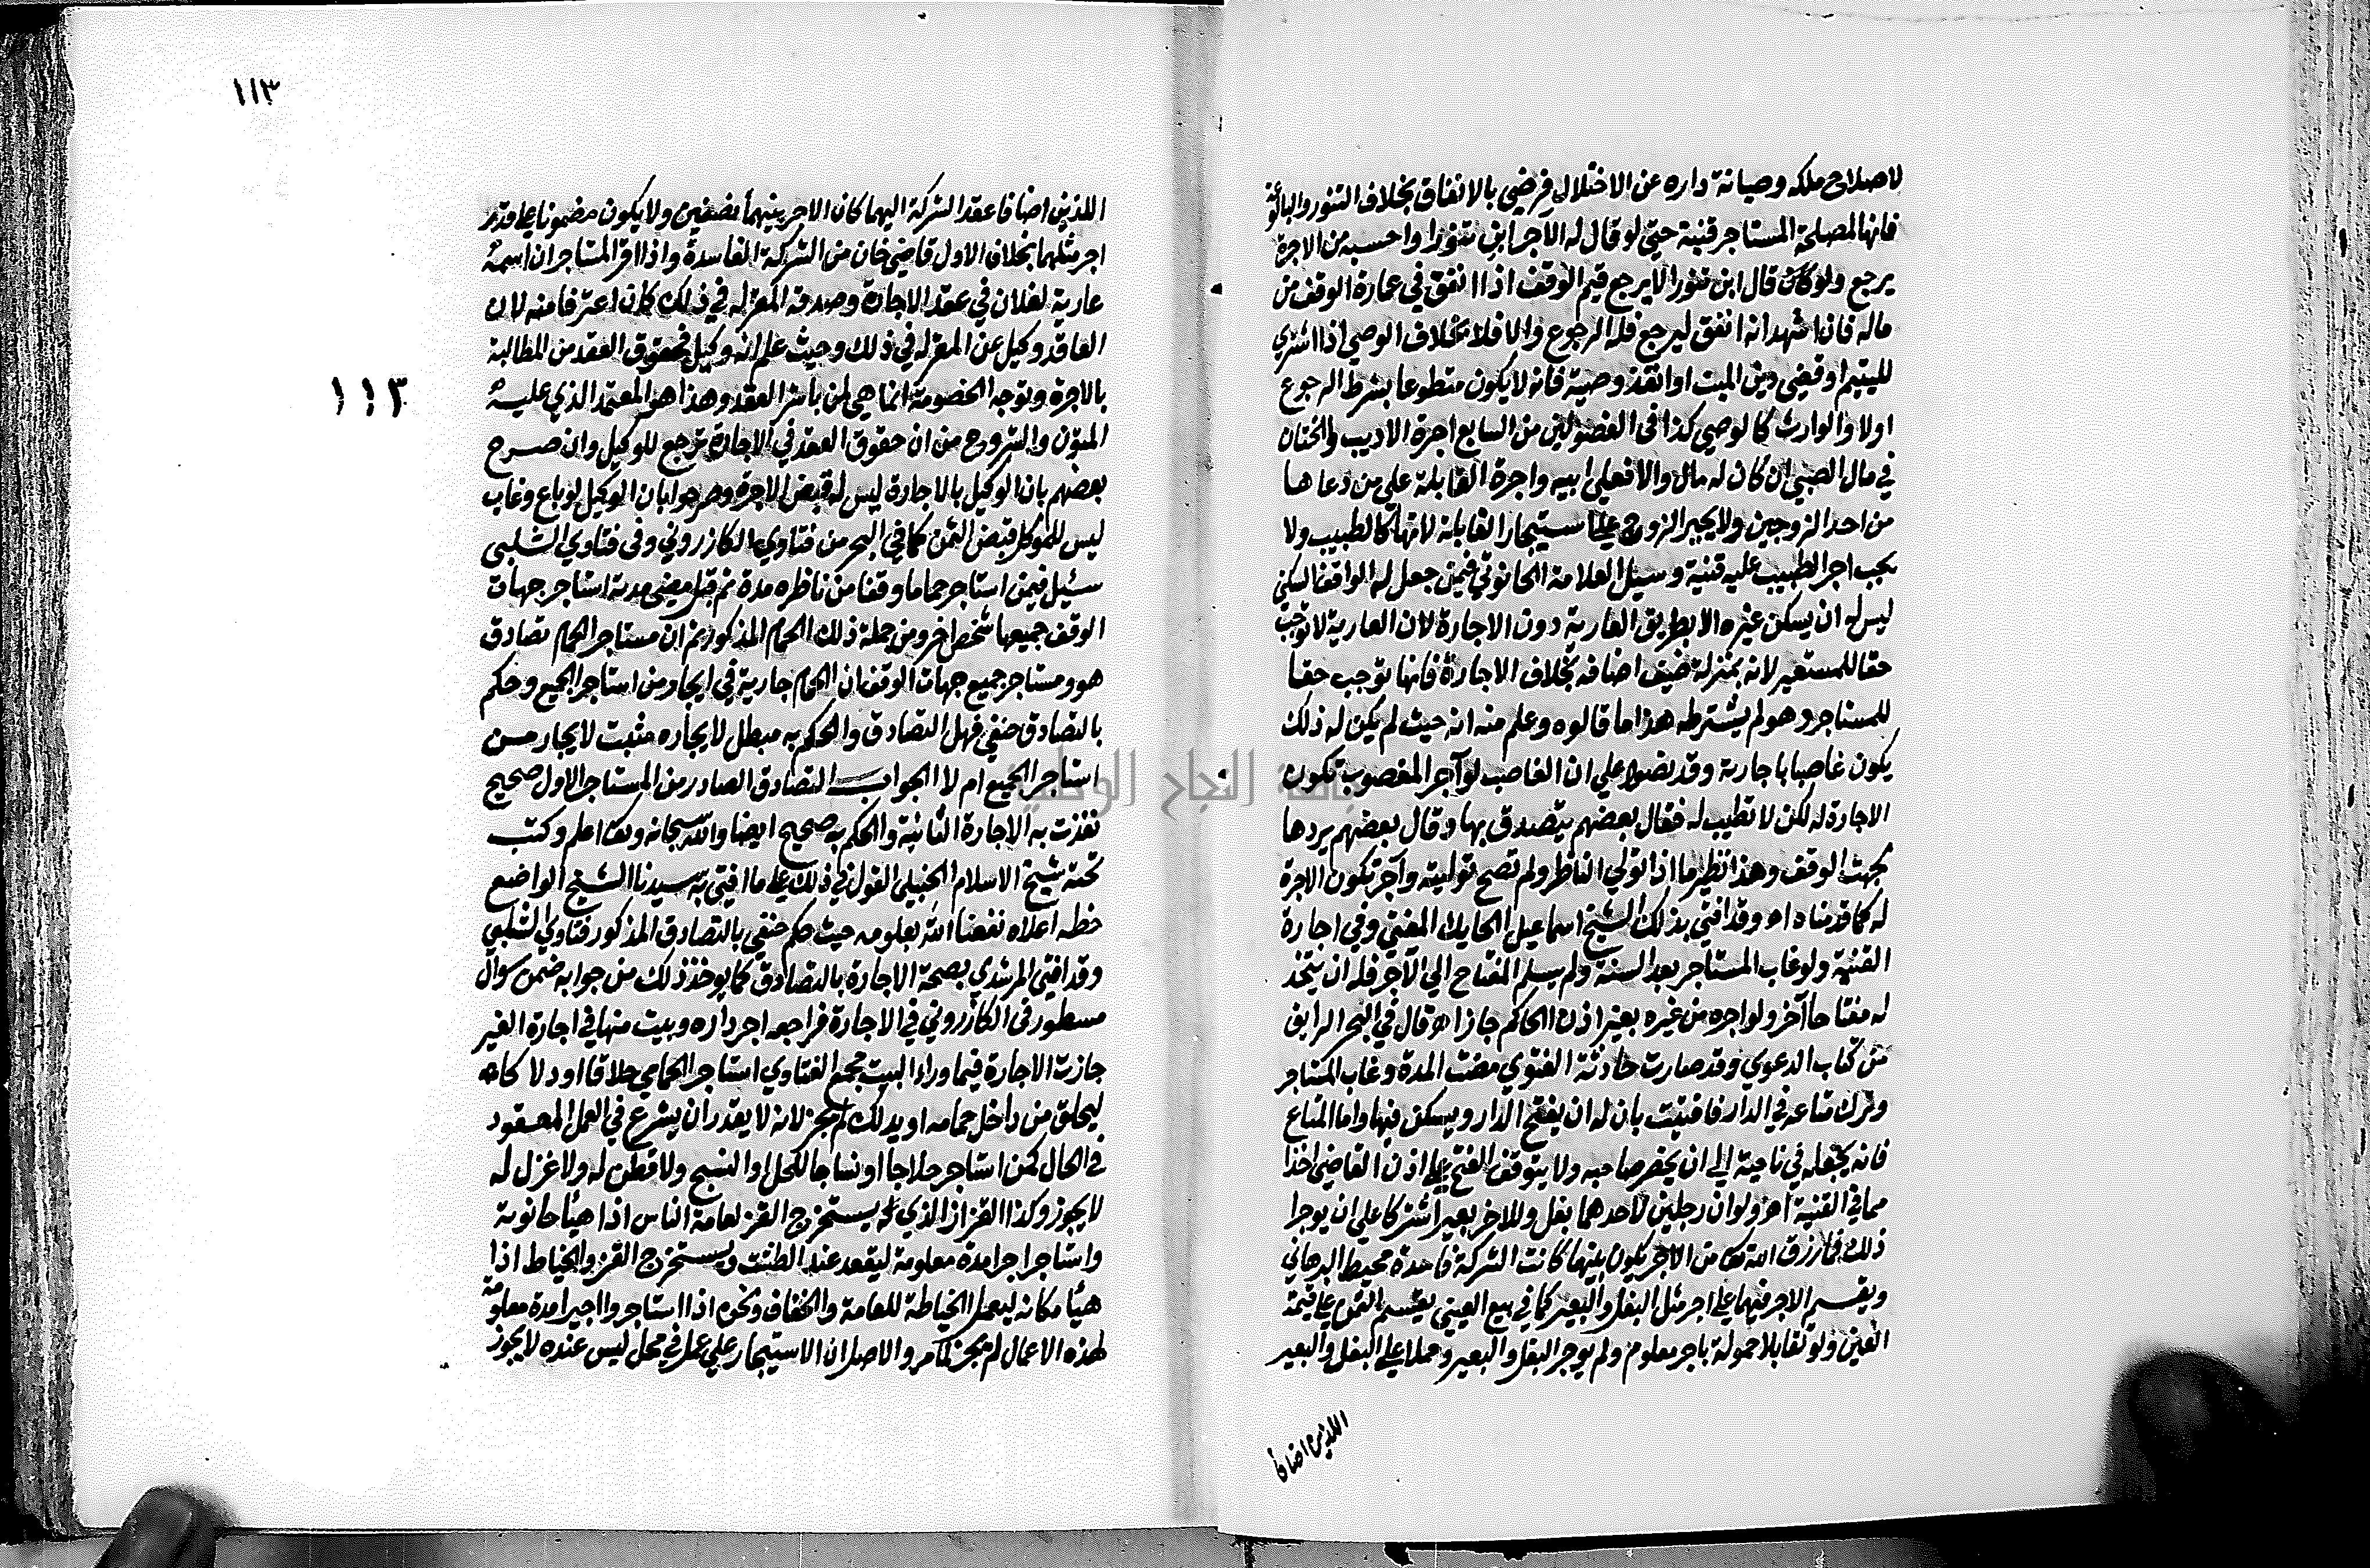 لاصلاح ملكه وصيانة داره عن الاختلال فرضي بالانفاق بخلاف التنور والبالوعة
فانها لمصلحة المستاجر قنية حتى لو قال له الاجر ابن تنورا واحسبه من الاجرة
يرجع ولو قال ابن تنورا لا يرجع قيم الوقف اذا انفق في عمارة الوقف من
ماله فان اشهد انه انفق ليرجع فله الرجوع والا فلا بخلاف الوصي اذا اشترى
لليتيم او قضي دين الميت او انفذ وصية فانه لا يكون متطوعا بشرط الرجوع
اولا والوارث كالوصي كذا في الفصولين من السابع اجرة الاديب والختان
في مال الصبي ان كان له مال والا فعلي ابيه واجرة القابلة علي من دعاها
من احد الزوجين ولا يجبر الزوج علي استيجار القابلة لانها كالطبيب ولا
يجب اجر الطبيب عليه قنية وسيل العلامة الحانوتي فيمن جعل له الواقف السكني
ليس له ان يسكن غيره الا بطريق العارية دون الاجارة لان العارية لا توجب
حقا للمستعير لانه بمنزلة ضيف اضافه بخلاف الاجارة فانها توجب حقا
للمستاجر وهو لم يشترطه هذا ما قالوه وعلم منه انه حيث لم يكن له ذلك
يكون غاصبا باجارية وقد نصوا علي ان الغاصب لو آجر المغصوب تكون
الاجارة له لكن لا تطيب له فقال بعضهم يتصدق بها وقال بعضهم يردها
بجهة الوقف وهذا نظير ما اذا تولي الناظر ولم تصح توليته وآجر تكون الاجرة
له كما قدمناه اه وقد افتي بذلك الشيخ اسماعيل الحايك المفتي وفي اجارة
القنية ولو غاب المستاجر بعد السنة ولم يسلم المفتاح الي الآجر فله ان يتخذ
له مفتاحا آخر ولو اجره من غيره بغير اذن الحاكم جاز اه قال في البحر الرايق
من كتاب الدعوي وقد صارت حادثة الفتوي مضت المدة وغاب المستاجر
وترك متاعه في الدار فافتيت بان له ان يفتح الدار ويسكن فيها واما المتاع
فانه يجعله في ناحية الي ان يحضر صاحبه ولا يتوقف الفتح علي اذن القاضي اخذا
مما في القنية اه ولو ان رجلين لاحدهما بغل وللاخر بعير اشتركا علي ان يوجرا
ذلك فما رزق الله تعا من الاجر يكون بينهما كانت الشركة فاسدة محيط البرهاني
ويقسم الاجر بينهما علي اجر مثل البغل والبعير كما في بيع العين يقسم الثمن علي قيمة
العين ولو تقابلا حمولة باجر معلوم ولم يوجر البغل والبعير وحملا علي البغل والبعير
اللذين اضافا
١١٣
١١٣
اللذين اضافا عقد الشركة اليهما كان الاجر بينهما نصفين ولا يكون مضمونا علي قدر
اجر مثلهما بخلاف الاول قاضي خان من الشركة الفاسدة واذا اقر المستاجر ان اسمه
عارية لفلان في عقد الاجارة وصدقه المقر له في ذلك كان اعترافا منه لان
العاقد وكيل عن المقر له في ذلك وحيث علم انه وكيل فحقوق العقد من المطالبة
بالاجرة وتوجه الخصومة انما هي لمن باشر العقد وهذا هو المعتمد الذي عليه
المتون والشروح من ان حقوق العقد في الاجارة ترجع للوكيل وان صرح
بعضهم بان الوكيل بالاجارة ليس له قبض الاجرة وصرحوا بان الوكيل لو باع وغاب
ليس للموكل قبض الثمن كما في البحر من فتاوي الكازروني وفي فتاوي الشلبي
سئيل فيمن استاجر حماما وقفا من ناظره مدة ثم قبل مضي مدته استاجر جهات
الوقف جميعها شخص اخر ومن جملة ذلك الحمام المذكور ثم ان مستاجر الحمام تصادق
هو ومستاجر جميع جهات الوقف ان الحمام جارية في ايجار من استاجر الجميع وحكم
بالتصادق حنفي فهل التصادق والحكم به مبطل لايجاره مثبت لايجار من
استاجر الجميع ام لا الجواب التصادق الصادر من المستاجر الاول صحيح
نفذت به الاجارة الثانية والحكم به صحيح ايضا والله سبحانه وتعا اعلم وكتب
تحته شيخ الاسلام الحنبلي القول في ذلك علي ما افتي به سيدنا الشيخ الواضع
خطه اعلاه نفعنا الله بعلومه حيث حكم حنفي بالتصادق المذكور فتاوي الشلبي
وقد افتي المرشدي بصحة الاجارة بالتصادق كما يوخذ ذلك من جوابه ضمن سوال
مسطور في الكازروني في الاجارة فراجعه اجر داره وبيت منها في اجارة الغير
جازت الاجارة فيما وراء البيت مجمع الفتاوي استاجر الحمامي حلاقا او دلاكا
ليحلق من داخل حمامه او يدلك لم يجز لانه لا يقدر ان يشرع في العمل المعقود
في الحال كمن استاجر حلاجا او نساجا للحل او النسج ولا قطن له ولا غزل له
لا يجوز وكذا القزاز الذي يستخرج القز لعامة الناس اذا هيأ حانوته
واستاجر اجرا مدة معلومة ليقعد عند الطشت ويستخرج القز والخياط اذا
هيأ مكانه ليعمل الخياطة للعامة والخفاف ونحوه اذا استاجروا اجيرا مدة معلومة
لهذه الاعمال لم يجز لما مر والاصل ان الاستيجار علي عمل في محل ليس عنده لا يجوز